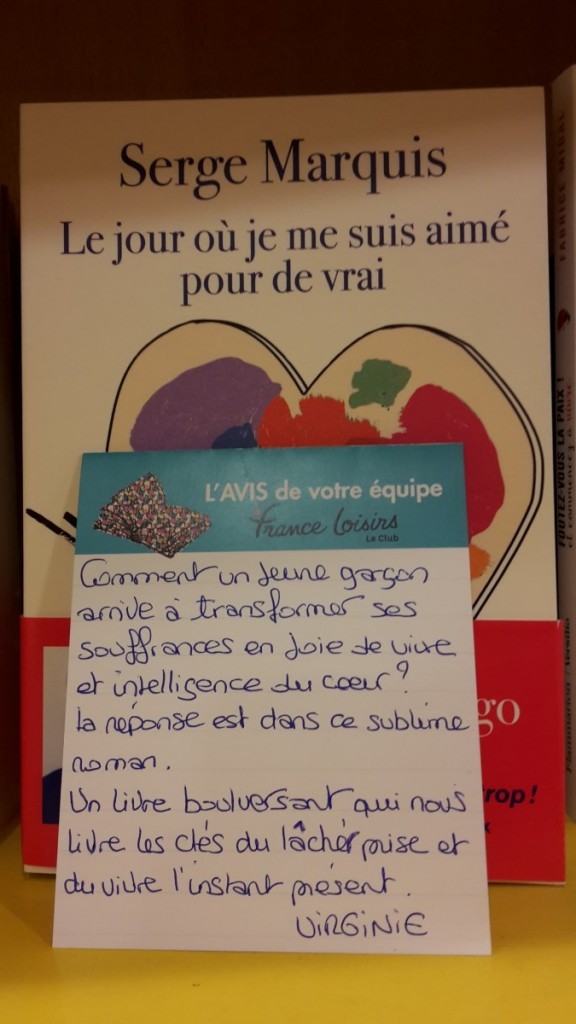 Serge Marquis
Le jour où je me suis aimé
pour de vrai
L'AVIS de votre équipe
France Loisirs
Le Club
Comment un jeune garçon
arrive à transformer ses
souffrances en joie de vivre
et intelligence du cœur ?
la réponse est dans ce sublime
roman.
Un livre boulversant qui nous
livre les clés du lâcher prise et
du vivre l'instant présent.
VIRGINIE
go
rop!
x
FABRICE MIDAL
FOUTEZ-VOUS LA PAIX !
et commencez à vivre
Flammarion / Versilio